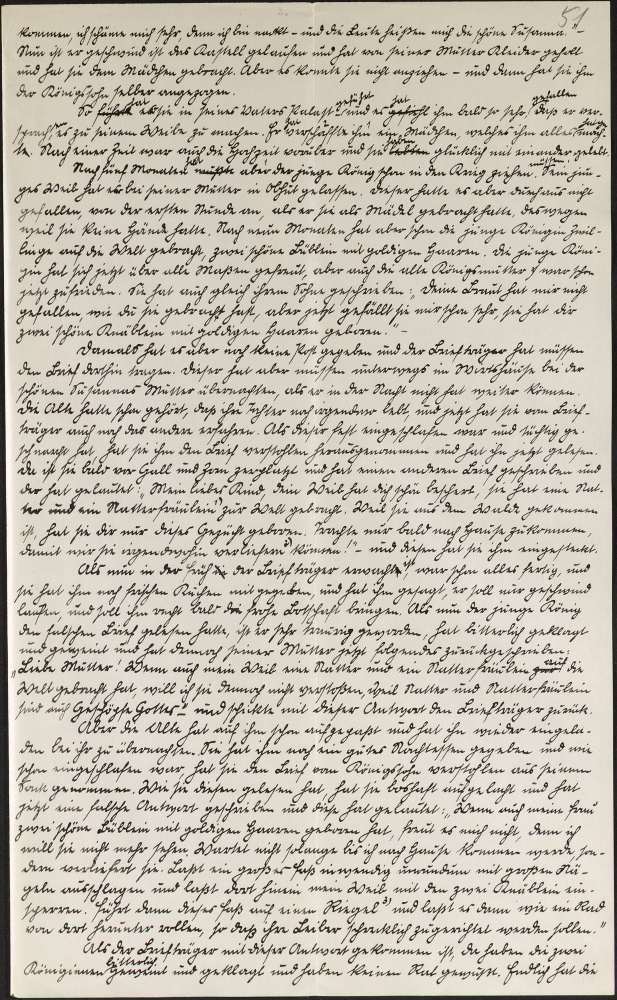 51
kommen, ich schäme mich sehr, denn ich bin nackt – und die Leute heißen mich die schöne Susanna." –
Nun ist er geschwind ist das Kastell gelaufen und hat von seiner Mutter Kleider geholt
und hat sie dem Mädchen gebracht. Aber es konnte sie nicht anziehen – und dann hat sie ihm
der Königssohn selber angezogen.
So führte hat er sie in seines Vaters Palast geführt und es gefiel hat ihm bald so sehr gefallen, daß er ver-
sprach, es zu seinem Weibe zu machen. Er verschaffte ihm ein Mädchen, welches ihm alles mach-
te. Nach einer Zeit war auch die Hochzeit vorüber und sie lebten haben glücklich mit einander gelebt.
Nach fünf Monaten mußte hat aber der junge König schon in den Krieg ziehen müssen. Sein jun-
ges Weib hat er bei seiner Mutter in Obhut gelassen. Dieser hatte es aber durchaus nicht
gefallen, von der ersten Stunde an, als er sie als Mädel gebracht hatte, deswegen
weil sie keine Hände hatte. Nach neun Monaten hat aber schon die junge Königin Zwil-
linge auf die Welt gebracht, zwei schöne Büblein mit goldigen Haaren. Die junge Köni-
gin hat sich jetzt über alle Maßen gefreut, aber auch die alte Königsmutter war schon
jetzt zufrieden. Sie hat auch gleich ihrem Sohne geschrieben: „Deine Braut hat mir nicht
gefallen, wie du sie gebracht hast, aber jetzt gefällt sie mir schon sehr, sie hat dir
zwei schöne Knäblein mit goldigen Haaren geboren!" –
Damals hat es aber noch keine Post gegeben und der Briefträger hat müssen
den Brief dorthin tragen. Dieser hat aber müssen unterwegs im Wirtshause bei der
schönen Susannas Mutter übernachten, als er in der Nacht nicht hat weiter können.
Die Alte hatte schon gehört, daß ihr Tochter noch irgendwo lebt und jetzt hat sie vom Brief-
träger auch noch das andere erfahren. Als dieser fest eingeschlafen war und tüchtig ge-
schnarcht hat, hat sie ihm den Brief verstohlen herausgenommen und hat ihn jetzt gelesen.
Da ist sie bald vor Gall und Zorn zerplatzt und hat einen anderen Brief geschrieben und
der hat gelautet: „Mein liebes Kind, dein Weib hat dich schön beschert, sie hat eine Nat-
ter und ein Natterfräulein zur Welt gebracht. Weil sie aus dem Walde gekommen
ist, hat sie dir nur dieses Gezücht geboren. Trachte nur bald nach Hause zu kommen,
damit wir sie irgendwohin verliefern können!" – und diesen hat sie ihm eingesteckt.
Als nun in der Früh der Briefträger erwachte, war schon alles fertig, und
sie hat ihm noch frischen Kuchen mit gegeben, und hat ihm gesagt, er soll nur geschwind
laufen, und soll ihm recht bald die frohe Botschaft bringen. Als nun der junge König
den falschen Brief gelesen hatte, ist er sehr traurig geworden, hat bitterlich geklagt
und geweint und hat demnach seiner Mutter jetzt folgendes zurückgeschrieben:
„Liebe Mutter! Wenn auch mein Weib eine Natter und ein Natterfräulein zur auf die
Welt gebracht hat, will ich sie dennoch nicht verstoßen, weil Natter und Natterfräulein
sind auch Geschöpfe Gottes" – und schickte mit dieser Antwort den Briefträger zurück.
Aber die Alte hat auf ihm schon aufgepaßt und hat ihn wieder eingela-
den bei ihr zu übernachten. Sie hat ihm noch ein gutes Nachtessen gegeben und wie
schon eingeschlafen war, hat sie den Brief vom Königssohn verstohlen aus seinem
Sack genommen. Wie sie diesen gelesen hat, hat sie boshaft aufgelacht und hat
jetzt eine falsche Antwort geschrieben und diese hat gelautet: „Wenn auch meine Frau
zwei schöne Büblein mit goldigen Haaren geboren hat, freut es mich nicht, denn ich
will sie nicht mehr sehen. Wartet nicht solange bis ich nach Hause kommen werde, son-
dern verliefert sie. Laßt ein großes Faß inwendig umundum mit großen Nä-
geln ausschlagen und laßt dort hinein mein Weib mit den zwei Knäblein ein-
sperren. Führt dann dieses Faß auf einen Riegel 3) und laßt es dann wie ein Rad
von dort herunter rollen, so daß ihre Leiber schrecklich zugerichtet werden sollen."
Als der Briefträger mit dieser Antwort gekommen ist, da haben die zwei
Königinnen bitterlich geweint und geklagt und haben keinen Rat gewußt. Endlich hat die